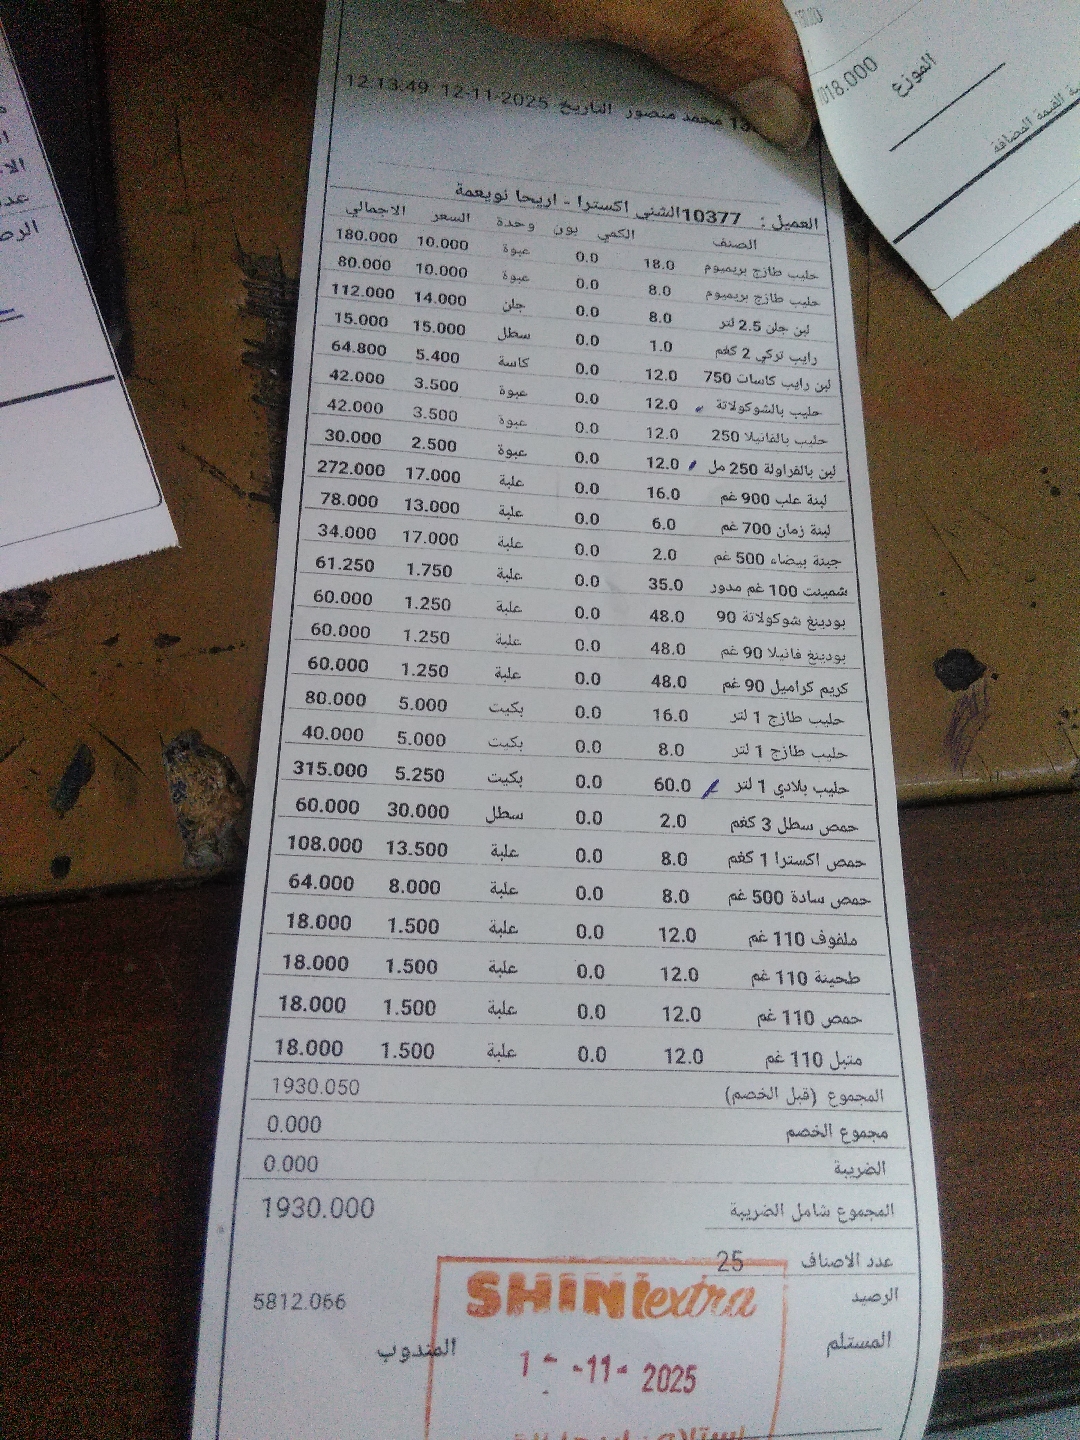 محمد منصور التاريخ 2025-11-12 12:13:49
العميل : 10377الشني اكسترا - اريحا نويعمة
الصنف الكمي بون وحدة السعر الاجمالي
حليب طازج بريميوم 18.0 0.0 عبوة 10.000 180.000
حليب طازج بريميوم 8.0 0.0 عبوة 10.000 80.000
لبن جلن 2.5 لتر 8.0 0.0 جلن 14.000 112.000
رايب تركي 2 كغم 1.0 0.0 سطل 15.000 15.000
لبن رايب كاسات 750 12.0 0.0 كاسة 5.400 64.800
حليب بالشوكولاتة 12.0 0.0 عبوة 3.500 42.000
حليب بالفانيلا 250 12.0 0.0 عبوة 3.500 42.000
لبن بالفراولة 250 مل 12.0 0.0 عبوة 2.500 30.000
لبنة علب 900 غم 16.0 0.0 علبة 17.000 272.000
لبنة زمان 700 غم 6.0 0.0 علبة 13.000 78.000
جبنة بيضاء 500 غم 2.0 0.0 علبة 17.000 34.000
شمينت 100 غم مدور 35.0 0.0 علبة 1.750 61.250
بودينغ شوكولاتة 90 48.0 0.0 علبة 1.250 60.000
بودينغ فانيلا 90 غم 48.0 0.0 علبة 1.250 60.000
كريم كراميل 90 غم 48.0 0.0 علبة 1.250 60.000
حليب طازج 1 لتر 16.0 0.0 بكيت 5.000 80.000
حليب طازج 1 لتر 8.0 0.0 بكيت 5.000 40.000
حليب بلادي 1 لتر 60.0 0.0 بكيت 5.250 315.000
حمص سطل 3 كغم 2.0 0.0 سطل 30.000 60.000
حمص اكسترا 1 كغم 8.0 0.0 علبة 13.500 108.000
حمص سادة 500 غم 8.0 0.0 علبة 8.000 64.000
ملفوف 110 غم 12.0 0.0 علبة 1.500 18.000
طحينة 110 غم 12.0 0.0 علبة 1.500 18.000
حمص 110 غم 12.0 0.0 علبة 1.500 18.000
متبل 110 غم 12.0 0.0 علبة 1.500 18.000
المجموع (قبل الخصم) 1930.050
مجموع الخصم 0.000
الضريبة 0.000
المجموع شامل الضريبة 1930.000
عدد الاصناف 25
الرصيد 5812.066
المستلم المندوب
SHINI extra
-11- 2025
018.000
الموزع
القيمة المضافة